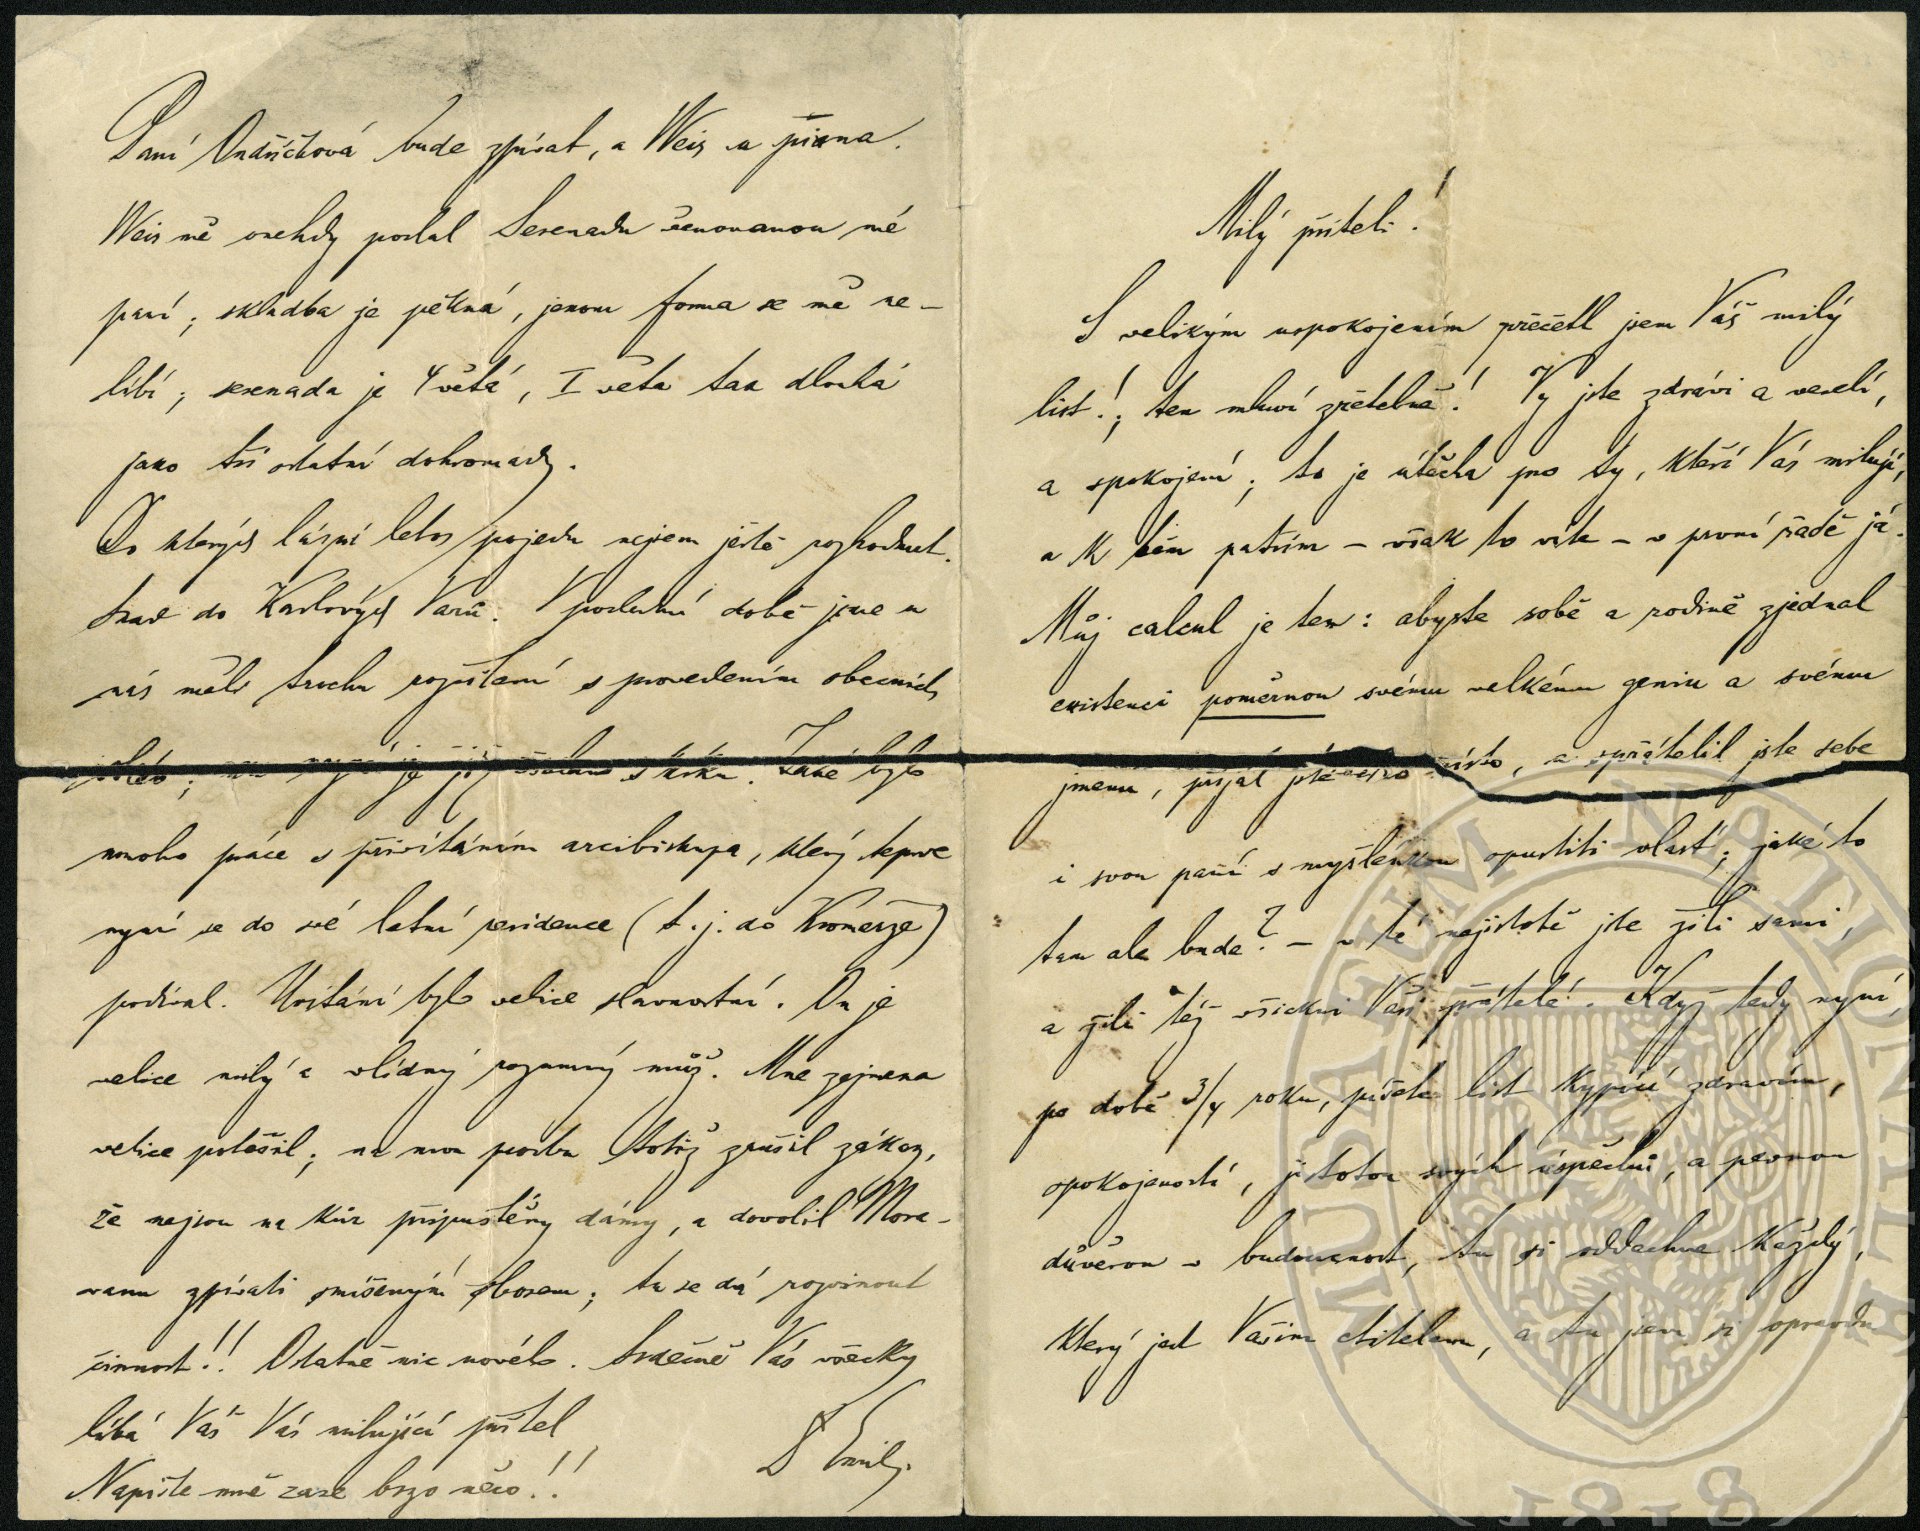 Milý příteli!
S velikým uspokojením přečetl jsem Váš milý
list!; ten mluví zřetelně! Vy jste zdrávi a veselí,
a spokojení; to je útěcha pro ty, kteří Vás milují,
a k těm patřím – však to víte – v první řadě já.
Můj calcul je ten: abyste sobě a rodině zjednal
existenci poměrnou svému velkému geniu a svému
jmenu, přijal jste místo, a spřátelil jste sebe
i svou paní s myšlenkou opustiti vlast; jaké to
tam ale bude? – v té nejistotě jste žili sami,
a žili též všickni Vaši přátelé. Když tedy nyní,
po době 3/4 roku, píšete list kypící zdravím,
spokojeností, jistotou svých úspěchů, a pevnou
důvěrou v budoucnost, tu si oddechne každý,
který jest Vaším ctitelem, a tu jsem si opravdu
Paní Ondříčková bude zpívat, a Weis a piana.
Weis mě onehdy poslal Serenadu věnovanou mé
paní; skladba je pěkná, jenom forma se mě ne–
líbí; serenada je 4větá, I věta tak dlouhá
jako tři ostatní dohromady.
Do kterých lázní letos pojedu nejsem ještě rozhodnut.
Snad do Karlových Varů. V poslední době jsme u
nás měli trochu rozčilení s provedením obecních
voleb; již všechno Také bylo
mnoho práce s přivítáním arcibiskupa, který teprve
nyní se do své letní residence (t.j. do Kroměříže)
podíval. Uvítání bylo velice slavnostní. On je
velice milý a vlídný rozumný muž. Mne zejmena
velice potěšil; na mou prosbu totiž zrušil zákaz,
že nejsou na kůr připuštěny dámy, a dovolil Mora–
vanu zpívati smíšeným sborem; tu se dá rozvinout
činnost!! Ostatně nic nového. Srdečně Vás všecky
líbá Váš Vás milující přítel
D Emil.
Napište mně zase brzo něco!!
MUSAEUM NATIONALE
1818